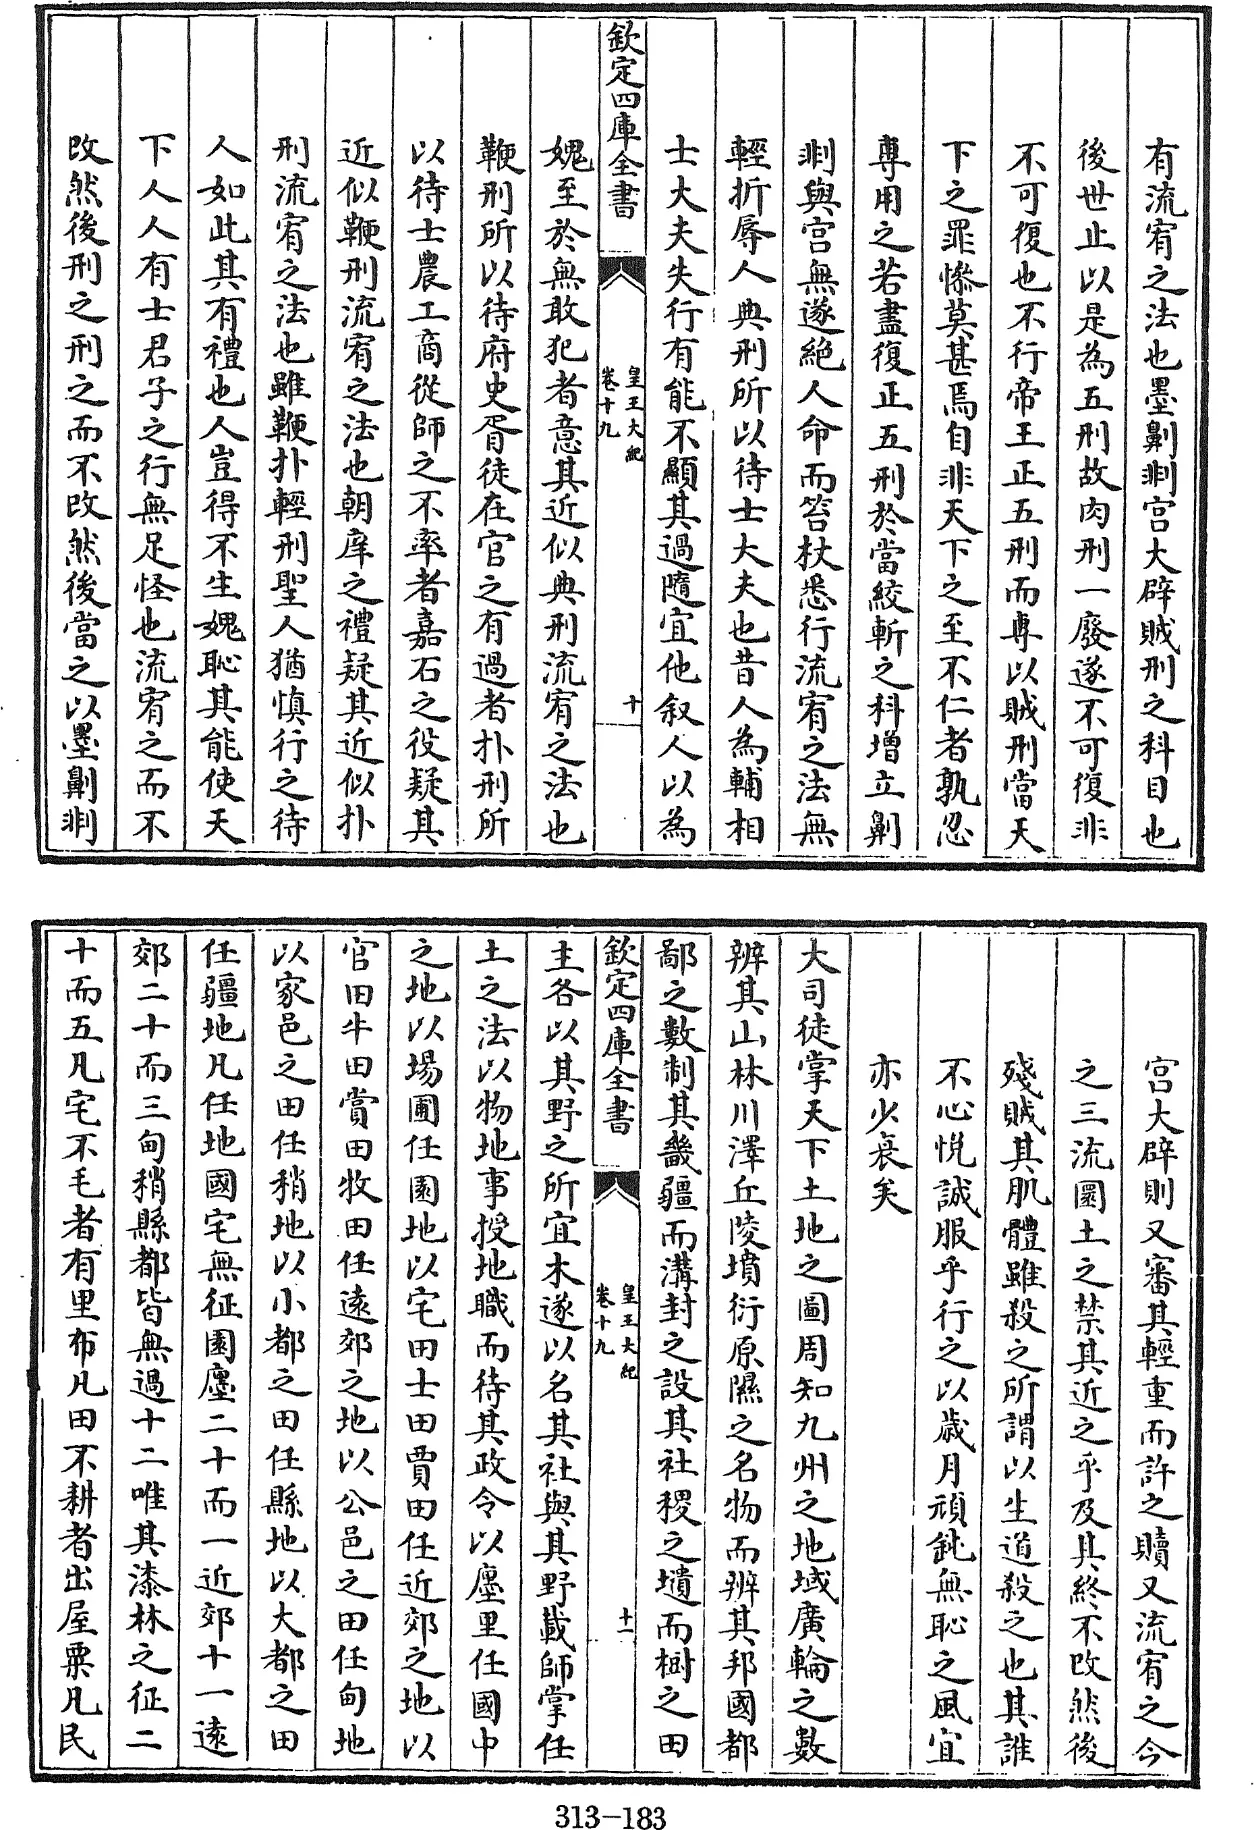 有流宥之法也墨劓剕宫大辟賊刑之科目也
後世止以是為五刑故肉刑一廢遂不可復非
不可復也不行帝王正五刑而專以賊刑當天
下之罪慘莫甚焉自非天下之至不仁者孰忍
專用之若盡復正五刑於當絞斬之科增立劓
剕與宫無遂絶人命而笞杖悉行流宥之法無
輕折辱人典刑所以待士大夫也昔人為輔相
士大夫失行有能不顯其過隨宜他叙人以為
欽定四庫全書
皇王大紀
卷十九
十
媿至於無敢犯者意其近似典刑流宥之法也
鞭刑所以待府史胥徒在官之有過者扑刑所
以待士農工商從師之不率者嘉石之役疑其
近似鞭刑流宥之法也朝庠之禮疑其近似扑
刑流宥之法也雖鞭扑輕刑聖人猶慎行之待
人如此其有禮也人豈得不生媿恥其能使天
下人人有士君子之行無足怪也流宥之而不
改然後刑之刑之而不改然後當之以墨劓剕
宫大辟則又審其輕重而許之贖又流宥之今
之三流圜土之禁其近之乎及其終不改然後
殘賊其肌體雖殺之所謂以生道殺之也其誰
不心悦誠服乎行之以歲月頑鈍無恥之風宜
亦少衰矣
大司徒掌天下土地之圖周知九州之地域廣輪之數
辨其山林川澤丘陵墳衍原隰之名物而辨其邦國都
鄙之數制其畿疆而溝封之設其社稷之壝而樹之田
欽定四庫全書
皇王大紀
卷十九
十一
主各以其野之所宜木遂以名其社與其野載師掌任
土之法以物地事授地職而待其政令以廛里任國中
之地以場圃任園地以宅田士田賈田任近郊之地以
官田牛田賞田牧田任遠郊之地以公邑之田任甸地
以家邑之田任稍地以小都之田任縣地以大都之田
任疆地凡任地國宅無征園廛二十而一近郊十一遠
郊二十而三甸稍縣都皆無過十二唯其漆林之征二
十而五凡宅不毛者有里布凡田不耕者出屋粟凡民
313-183